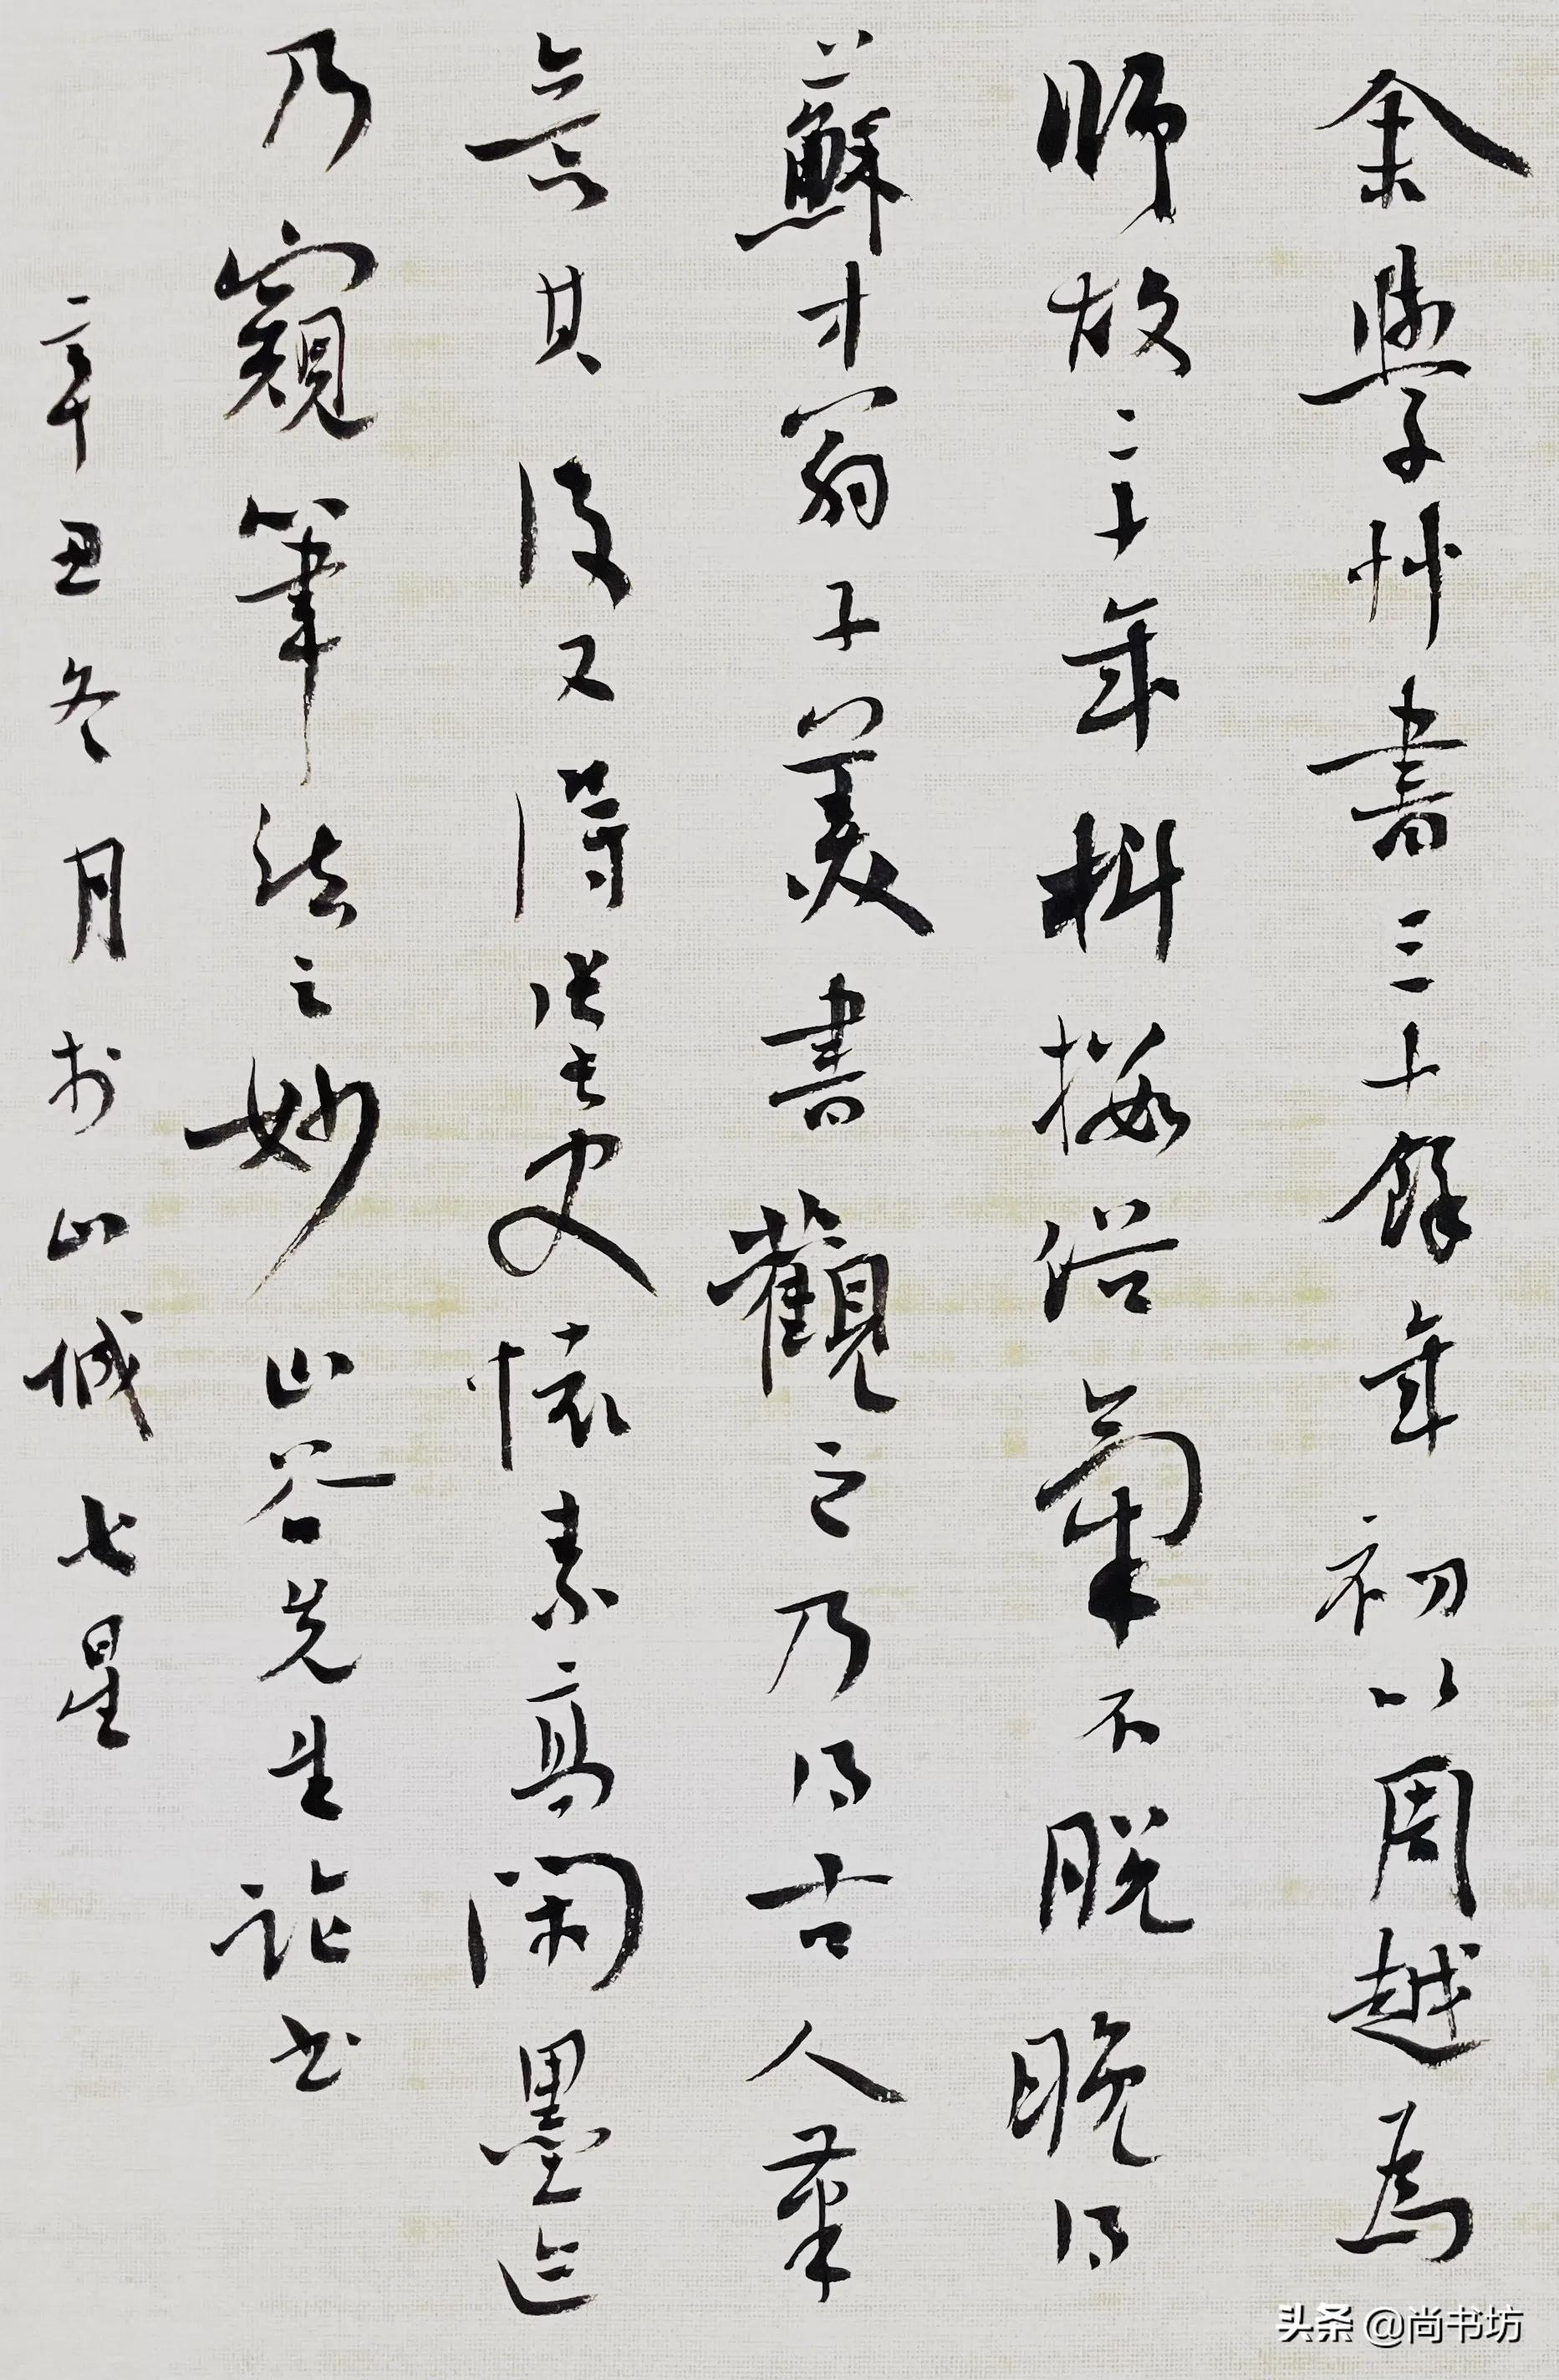 余學艸書三十餘年初以周越爲
師故二十年抖擻俗氣不脱晚得
蘇才翁子美書觀之乃得古人筆
意其後又得張長史懷素高閑墨迹
乃窺筆法之妙山谷先生論書
辛丑冬月於山城七星
头条 @尚书坊